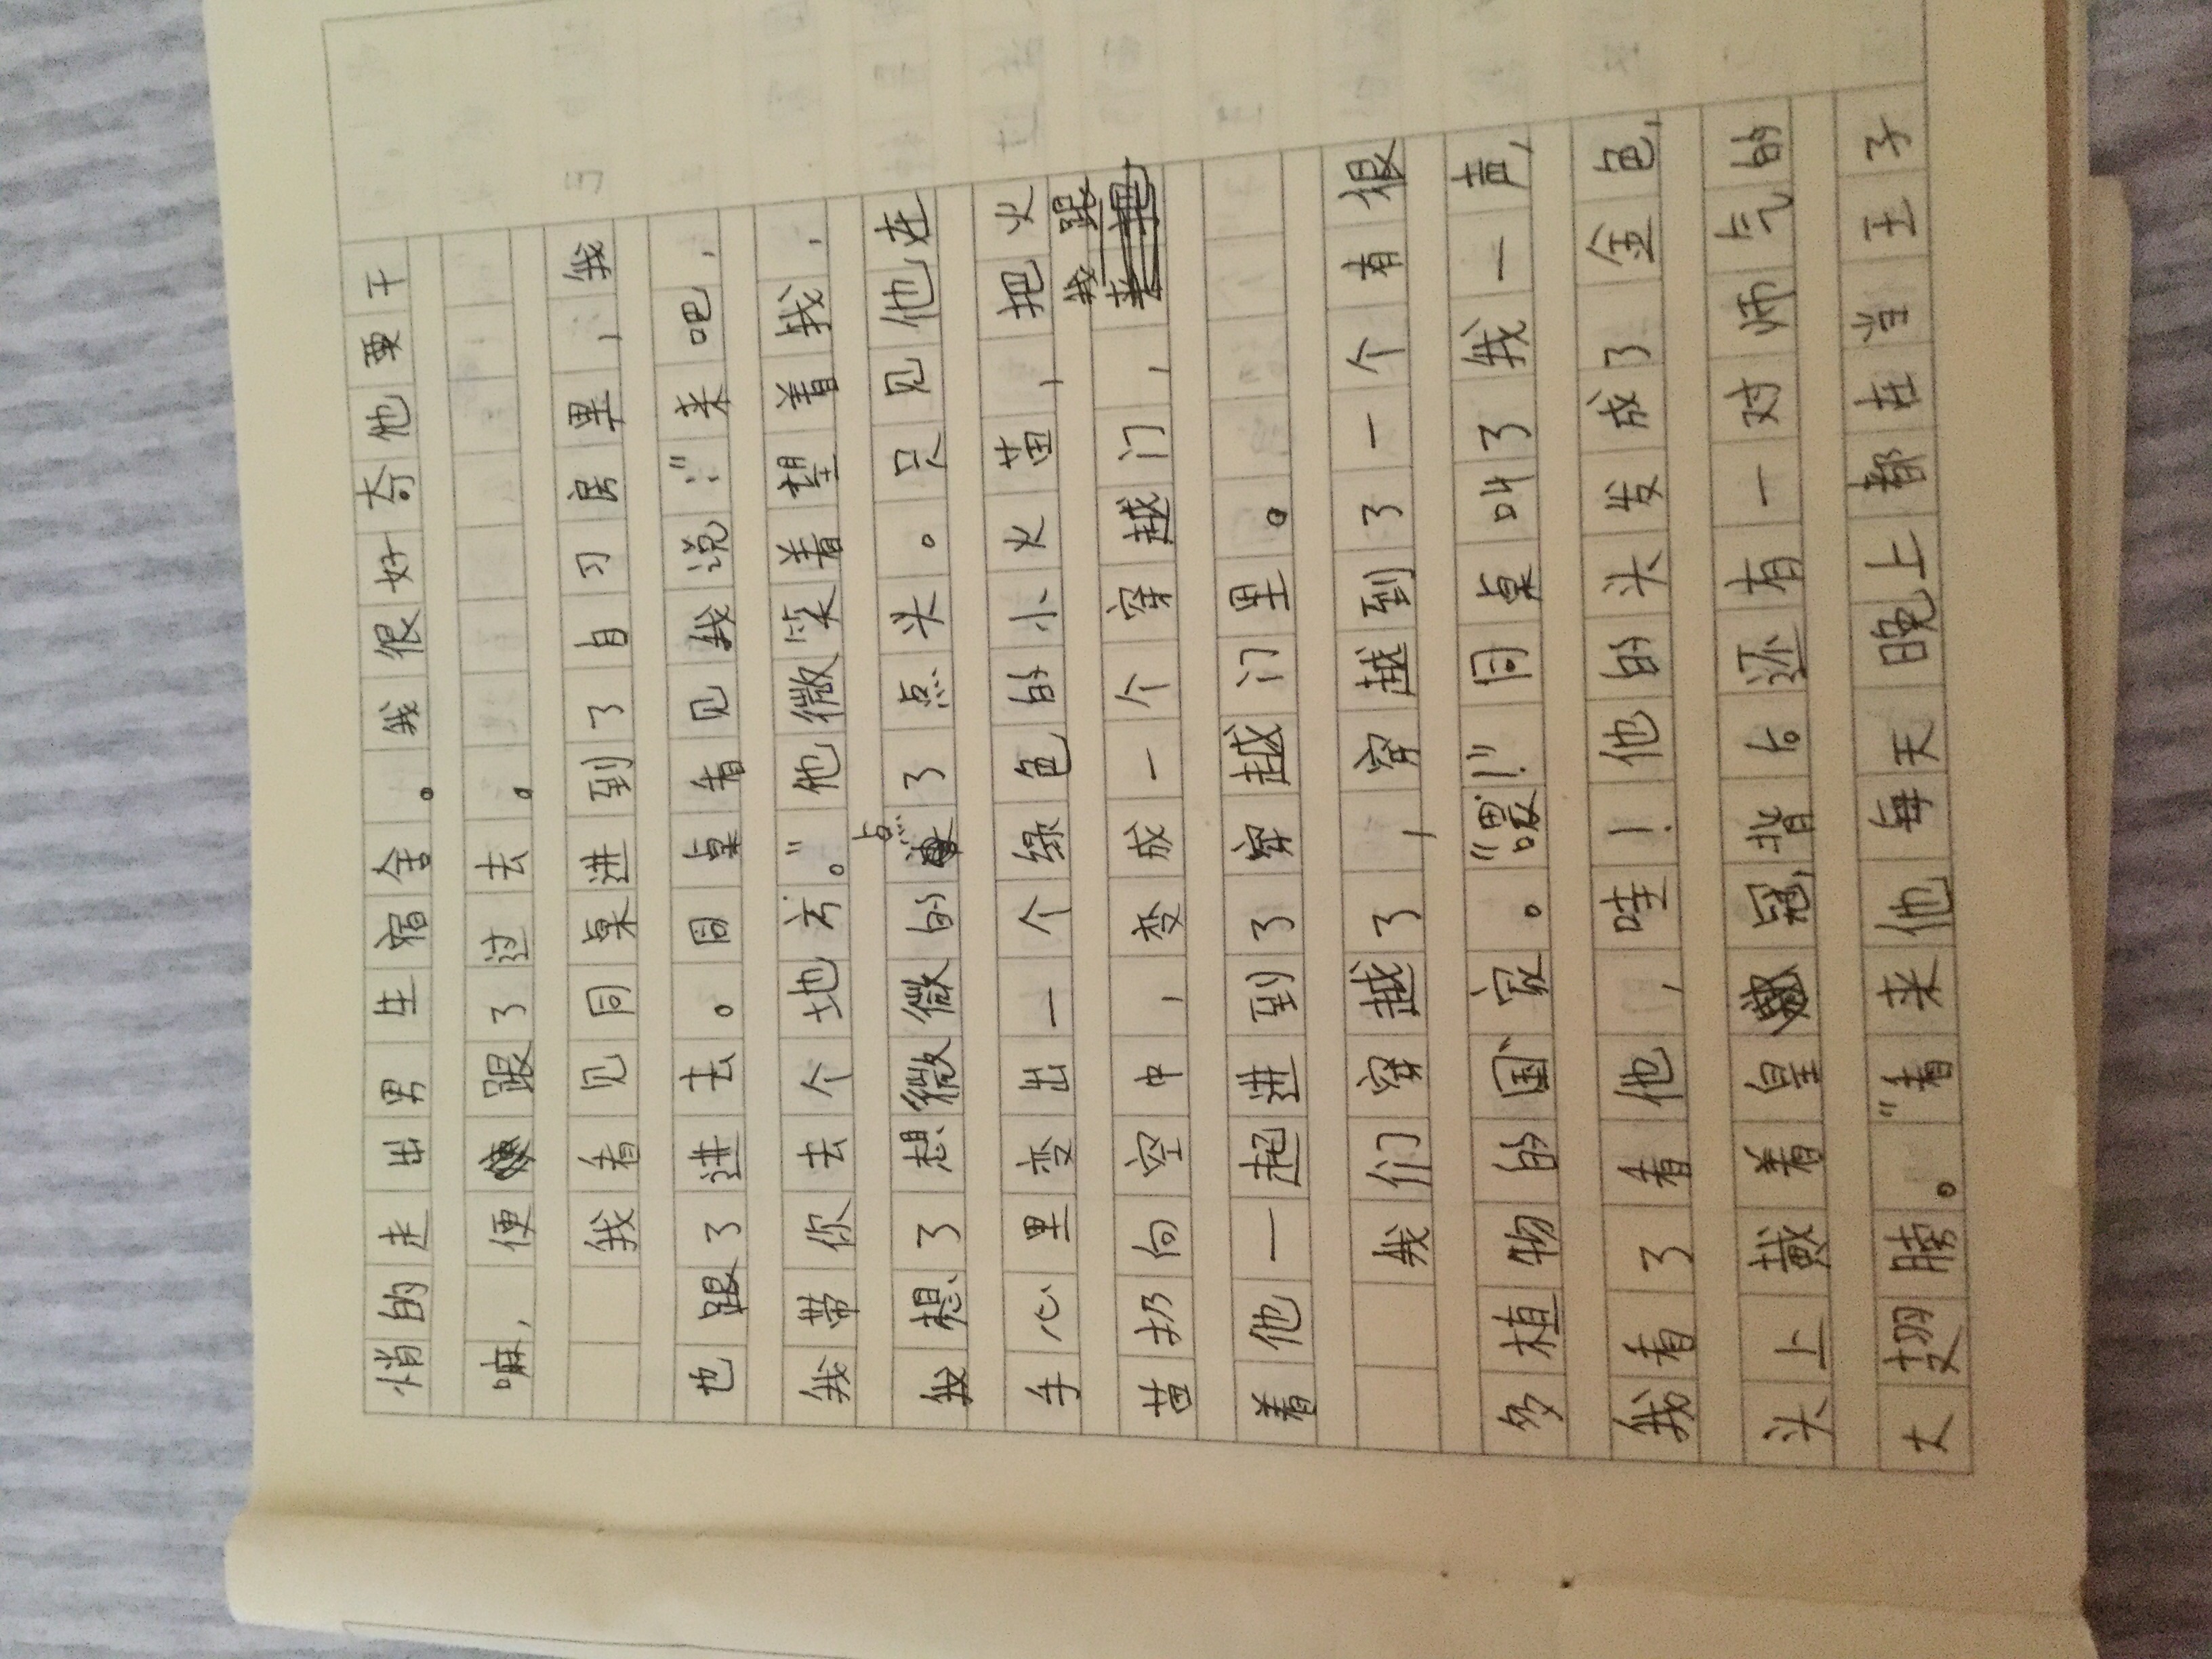 悄的走出男生宿舍。我很好奇他要干
嘛，便跟了过去。
我看见同桌进到了自习房里，我
也跟了进去。同桌看见我说：“来吧，
我带你去个地方。”他微笑着望着我，
我想了想微微的点了点头。只见他在
手心里变出一个绿色的小火苗，把火
苗扔向空中，变成一个穿越门，我跟
着他一起进到了穿越门里。
我们穿越了，穿越到了一个有很
多植物的国家。“嘿！”同桌叫了我一声，
我看了看他，哇！他的头发成了金色，
头上戴着皇冠，背后还有一对帅气的
大翅膀。“看来他每天晚上都在当王子